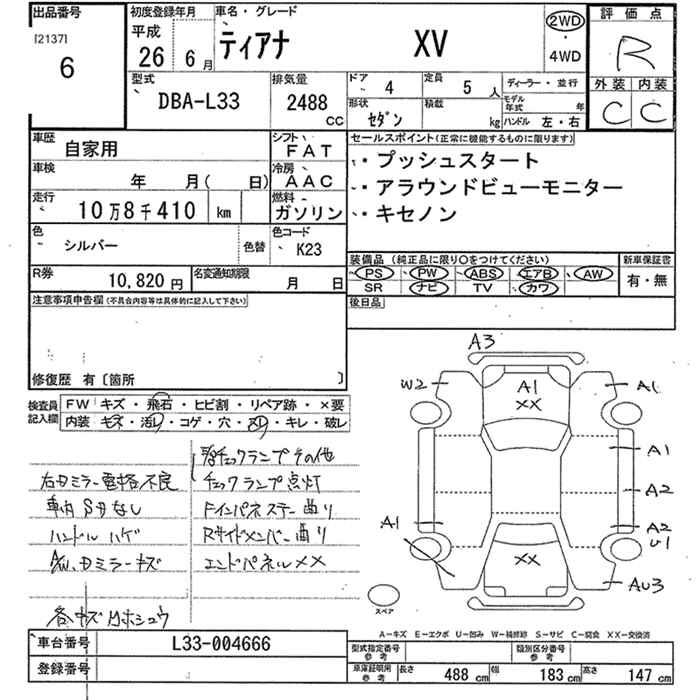 出品番号
[2137]
6
初度登録年月
平成
26 6月
車名・グレード
ティアナ XV
2WD
・
4WD
評価点
R
外装 内装
C C
型式
DBA-L33
排気量
2488
CC
ドア
4
定員
5 人
ディーラー・並行
形状
セダン
積載
kg
モデル
年式
年
ハンドル 左・右
車歴
自家用
シフト
FAT
車検
年 月( 日)
冷房
AAC
走行
10万8千410 km
燃料
ガソリン
色
シルバー
色替
色コード
K23
R券
10,820 円
名変通知期限
月 日
セールスポイント(正常に機能するものに限ります)
・プッシュスタート
・アラウンドビューモニター
・キセノン
装備品 (純正品に限り○をつけてください)
PS PW ABS エアB AW
SR ナビ TV カワ
新車保証書
有・無
後日品
注意事項申告欄(不具合内容等は具体的に記入して下さい)
修復歴 有〔箇所 〕
検査員
記入欄
FW キズ・飛石・ヒビ割・リペア跡・×要
内装 キズ・汚レ・コゲ・穴・スレ・キレ・破レ
右ドミラー電格不良
車内SDなし
ハンドルハゲ
AW、ドミラーキズ
各、キズ
チェックランプ その他
チェックランプ点灯
Fインパネステー曲り
Rサイドメンバー曲り
エンドパネルXX
A3
W2
A1
XX
A1
A1
A2
A1
A2
U1
XX
AU3
スペア
A-キズ E-エクボ U-凹み W-補修跡 S-サビ C-腐食 XX-交換済
車台番号
L33-004666
登録番号
型式指定番号
参考
類別区分番号
参考
車庫証明用
参考
長さ 488 cm
幅 183 cm
高さ 147 cm